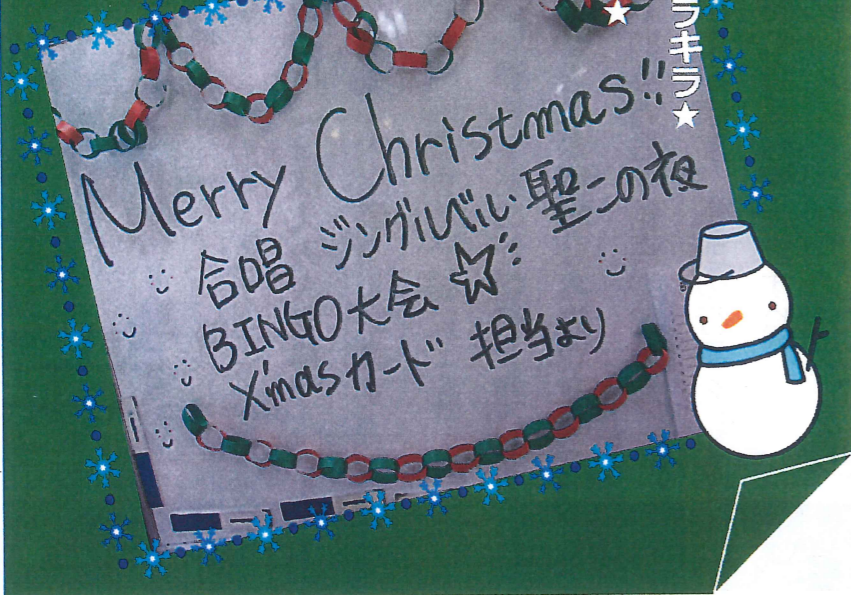 ラキラ★
★
Merry Christmas!!
合唱 ジングルベル・聖この夜
BINGO大会 ☆
X'masカード 担当より